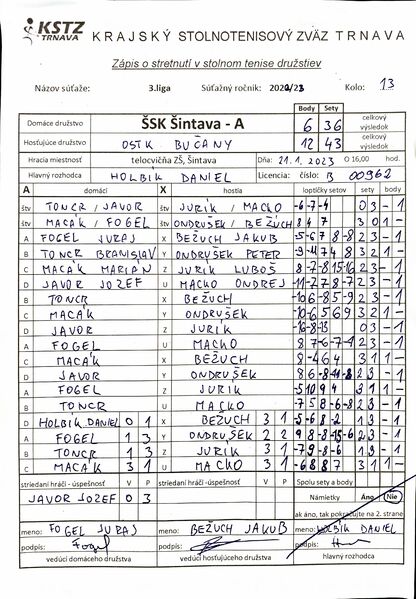 KSTZ TRNAVA KRAJSKÝ STOLNOTENISOVÝ ZVÄZ TRNAVA
Zápis o stretnutí v stolnom tenise družstiev
Názov súťaže: 3.liga Súťažný ročník: 2022/23 Kolo: 13
Body Sety
Domáce družstvo ŠSK Šintava - A 6 36 celkový výsledok
Hosťujúce družstvo OSTK BUČANY 12 43 celkový výsledok
Hracia miestnosť telocvičňa ZŠ, Šintava Dňa: 21.1.2023 O 16,00 hod.
Hlavný rozhodca HOLBIK DANIEL Licencia: číslo: B 00962
A domáci X hostia loptičky setov sety body
štv TONCR / JAVOR štv JURÍK / MACKO -6 -7 -4 0 3 - 1
štv MACÁK / FOGEL štv ONDRUŠEK / BEŽÚCH 8 4 7 3 0 1 -
A FOGEL JURAJ X BEŽUCH JAKUB 2 3 - 1
B TONCR BRANISLAV Y ONDRUŠEK PETER 3 2 1 -
C MACÁK MARIÁN Z JURÍK LUBOŠ 2 3 - 1
D JAVOR JOZEF U MACKO ONDREJ 2 3 - 1
B TONCR X BEŽUCH 2 3 - 1
C MACÁK Y ONDRUŠEK 3 1 1 -
D JAVOR Z JURÍK 0 3 - 1
A FOGEL U MACKO 2 3 - 1
C MACÁK X BEŽUCH 8 -4 6 4 3 1 1 -
D JAVOR Y ONDRUŠEK 2 3 - 1
A FOGEL Z JURÍK 3 1 1 -
B TONCR U MACKO 2 3 - 1
D HOLBIK DANIEL 0 1 X BEŽUCH 3 1 -5 -6 8 -2 1 3 - 1
A FOGEL 1 3 Y ONDRUŠEK 2 2 2 3 - 1
B TONCR 1 3 Z JURÍK 3 1 -7 9 -8 -6 1 3 - 1
C MACÁK 3 1 U MACKO 3 1 -6 8 8 7 3 1 1 -
striedaní hráči - úspešnosť V P striedaní hráči - úspešnosť V P Spolu sety a body
JAVOR JOZEF 0 3 Námietky Áno Nie
ak áno, tak pokračujte na 2. strane
meno: FOGEL JURAJ meno: BEŽUCH JAKUB meno: HOLBIK DANIEL
podpis: podpis: podpis:
vedúci domáceho družstva vedúci hosťujúceho družstva hlavný rozhodca